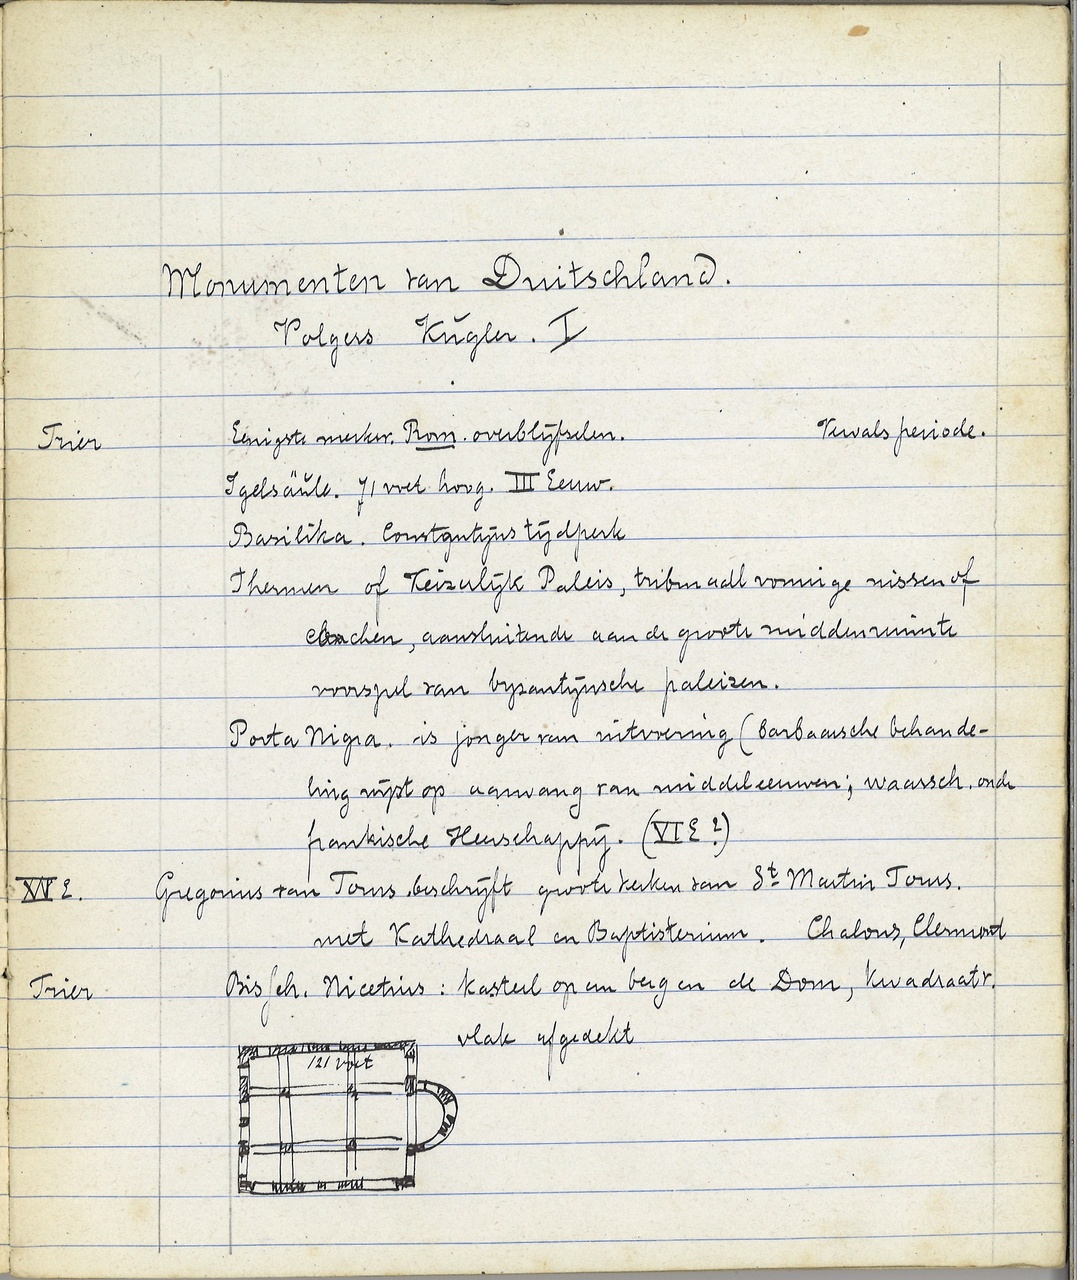 Monumenten van Duitschland.
Volgens Kŭgler. I
Trier Eenigste merkw. Rom. overblijfselen. Vervalsperiode.
Igelsäŭle. 71 voet hoog. III Eeuw.
Basilika. Constantijns tijdperk
Thermen of Keizerlijk Paleis, vormige nissen of
aansluitende aan de groote middenruimte
voorspel van byzantijnsche paleizen.
Porta Nigra. is jonger van uitvoering (barbaarsche behande-
ling wijst op aanvang van middeleeuwen; waarsch. onder
frankische Heerschappij. (VI E ?)
E. Gregorius van Tours beschrijft groote kerken van St Martin Tours.
met Kathedraal en Baptisterium. Chalons, Clermont
Trier Bissch. Nicetius : kasteel op een berg en de Dom, kwadraatv.
vlak afgedekt
121 voet